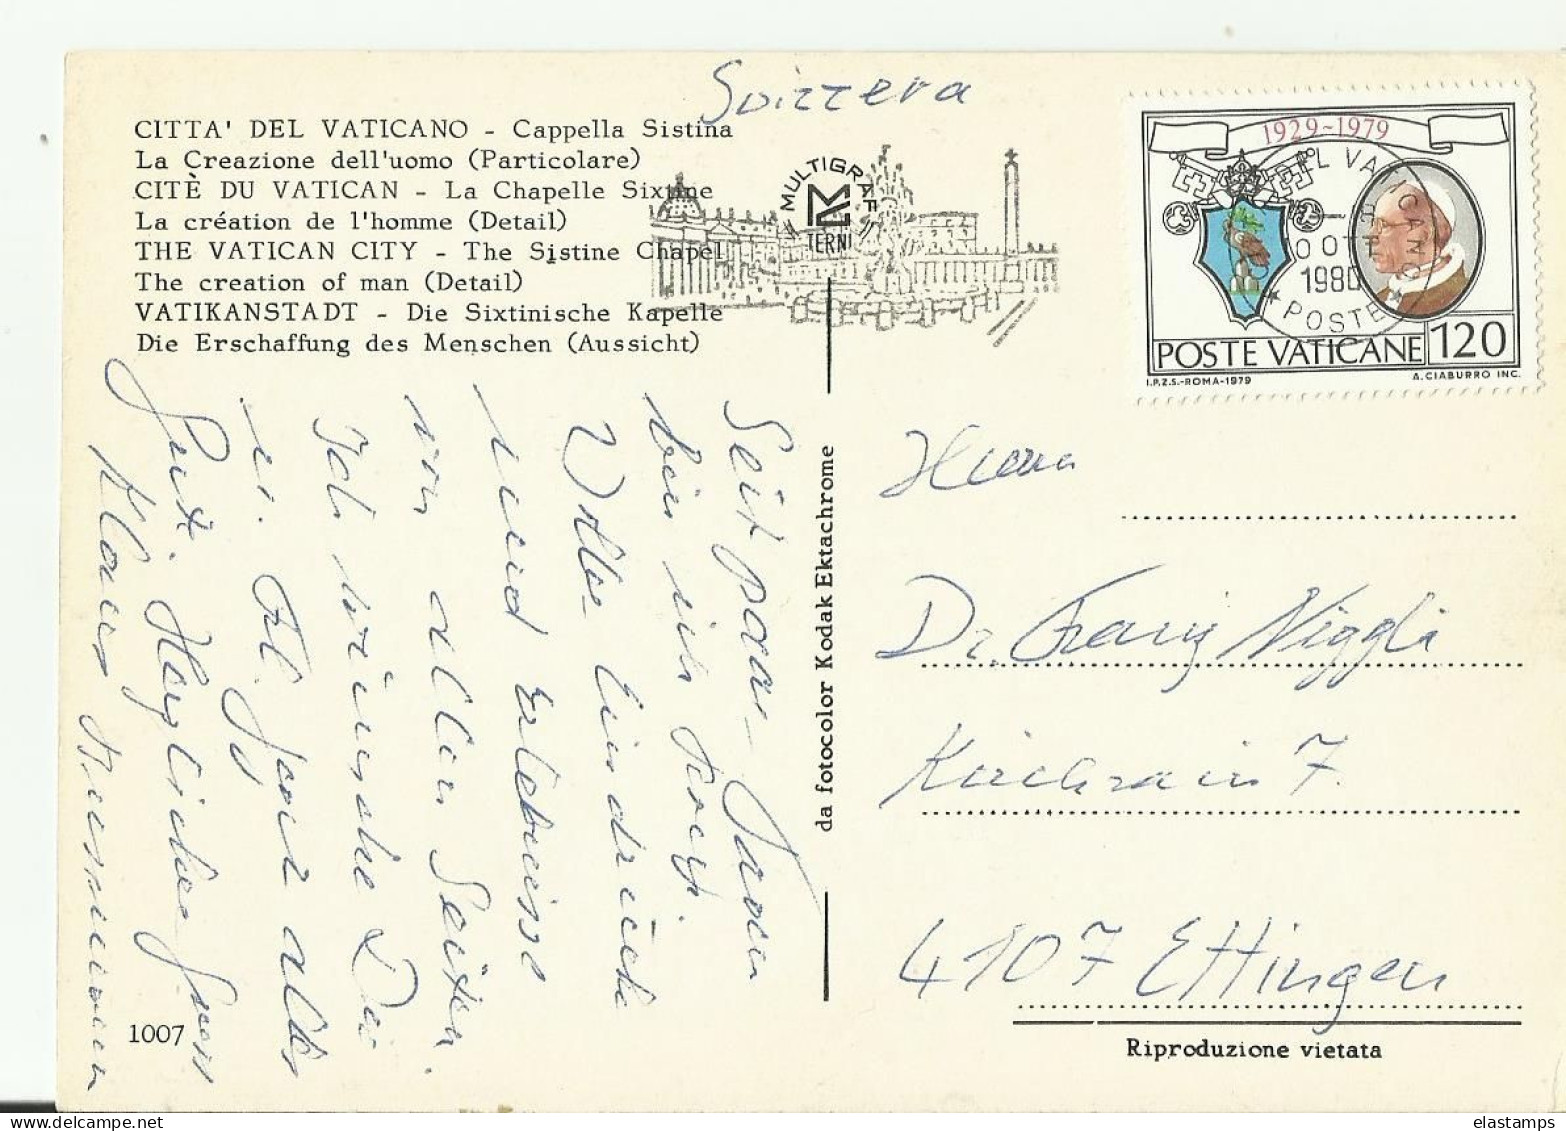 Svizzera
CITTA' DEL VATICANO - Cappella Sistina
La Creazione dell'uomo (Particolare)
CITÈ DU VATICAN - La Chapelle Sixtine
La création de l'homme (Detail)
THE VATICAN CITY - The Sistine Chapel
The creation of man (Detail)
VATIKANSTADT - Die Sixtinische Kapelle
Die Erschaffung des Menschen (Aussicht)
MULTIGRAF
TERNI
1929~1979
1980
POSTE
POSTE VATICANE 120
I.P.Z.S.-ROMA-1979 A. CIABURRO INC.
Seit paar Tagen
bin ich
Volle Eindrücke
und Erlebnisse
von allen Seiten.
Ich wünsche Dir
alles
Gute. Herzlichen Gruss
Klaus
da fotocolor Kodak Ektachrome
Herrn
Dr. Franz Niggli
Kirchrain 7
4107 Ettingen
1007
Riproduzione vietata
elastamps